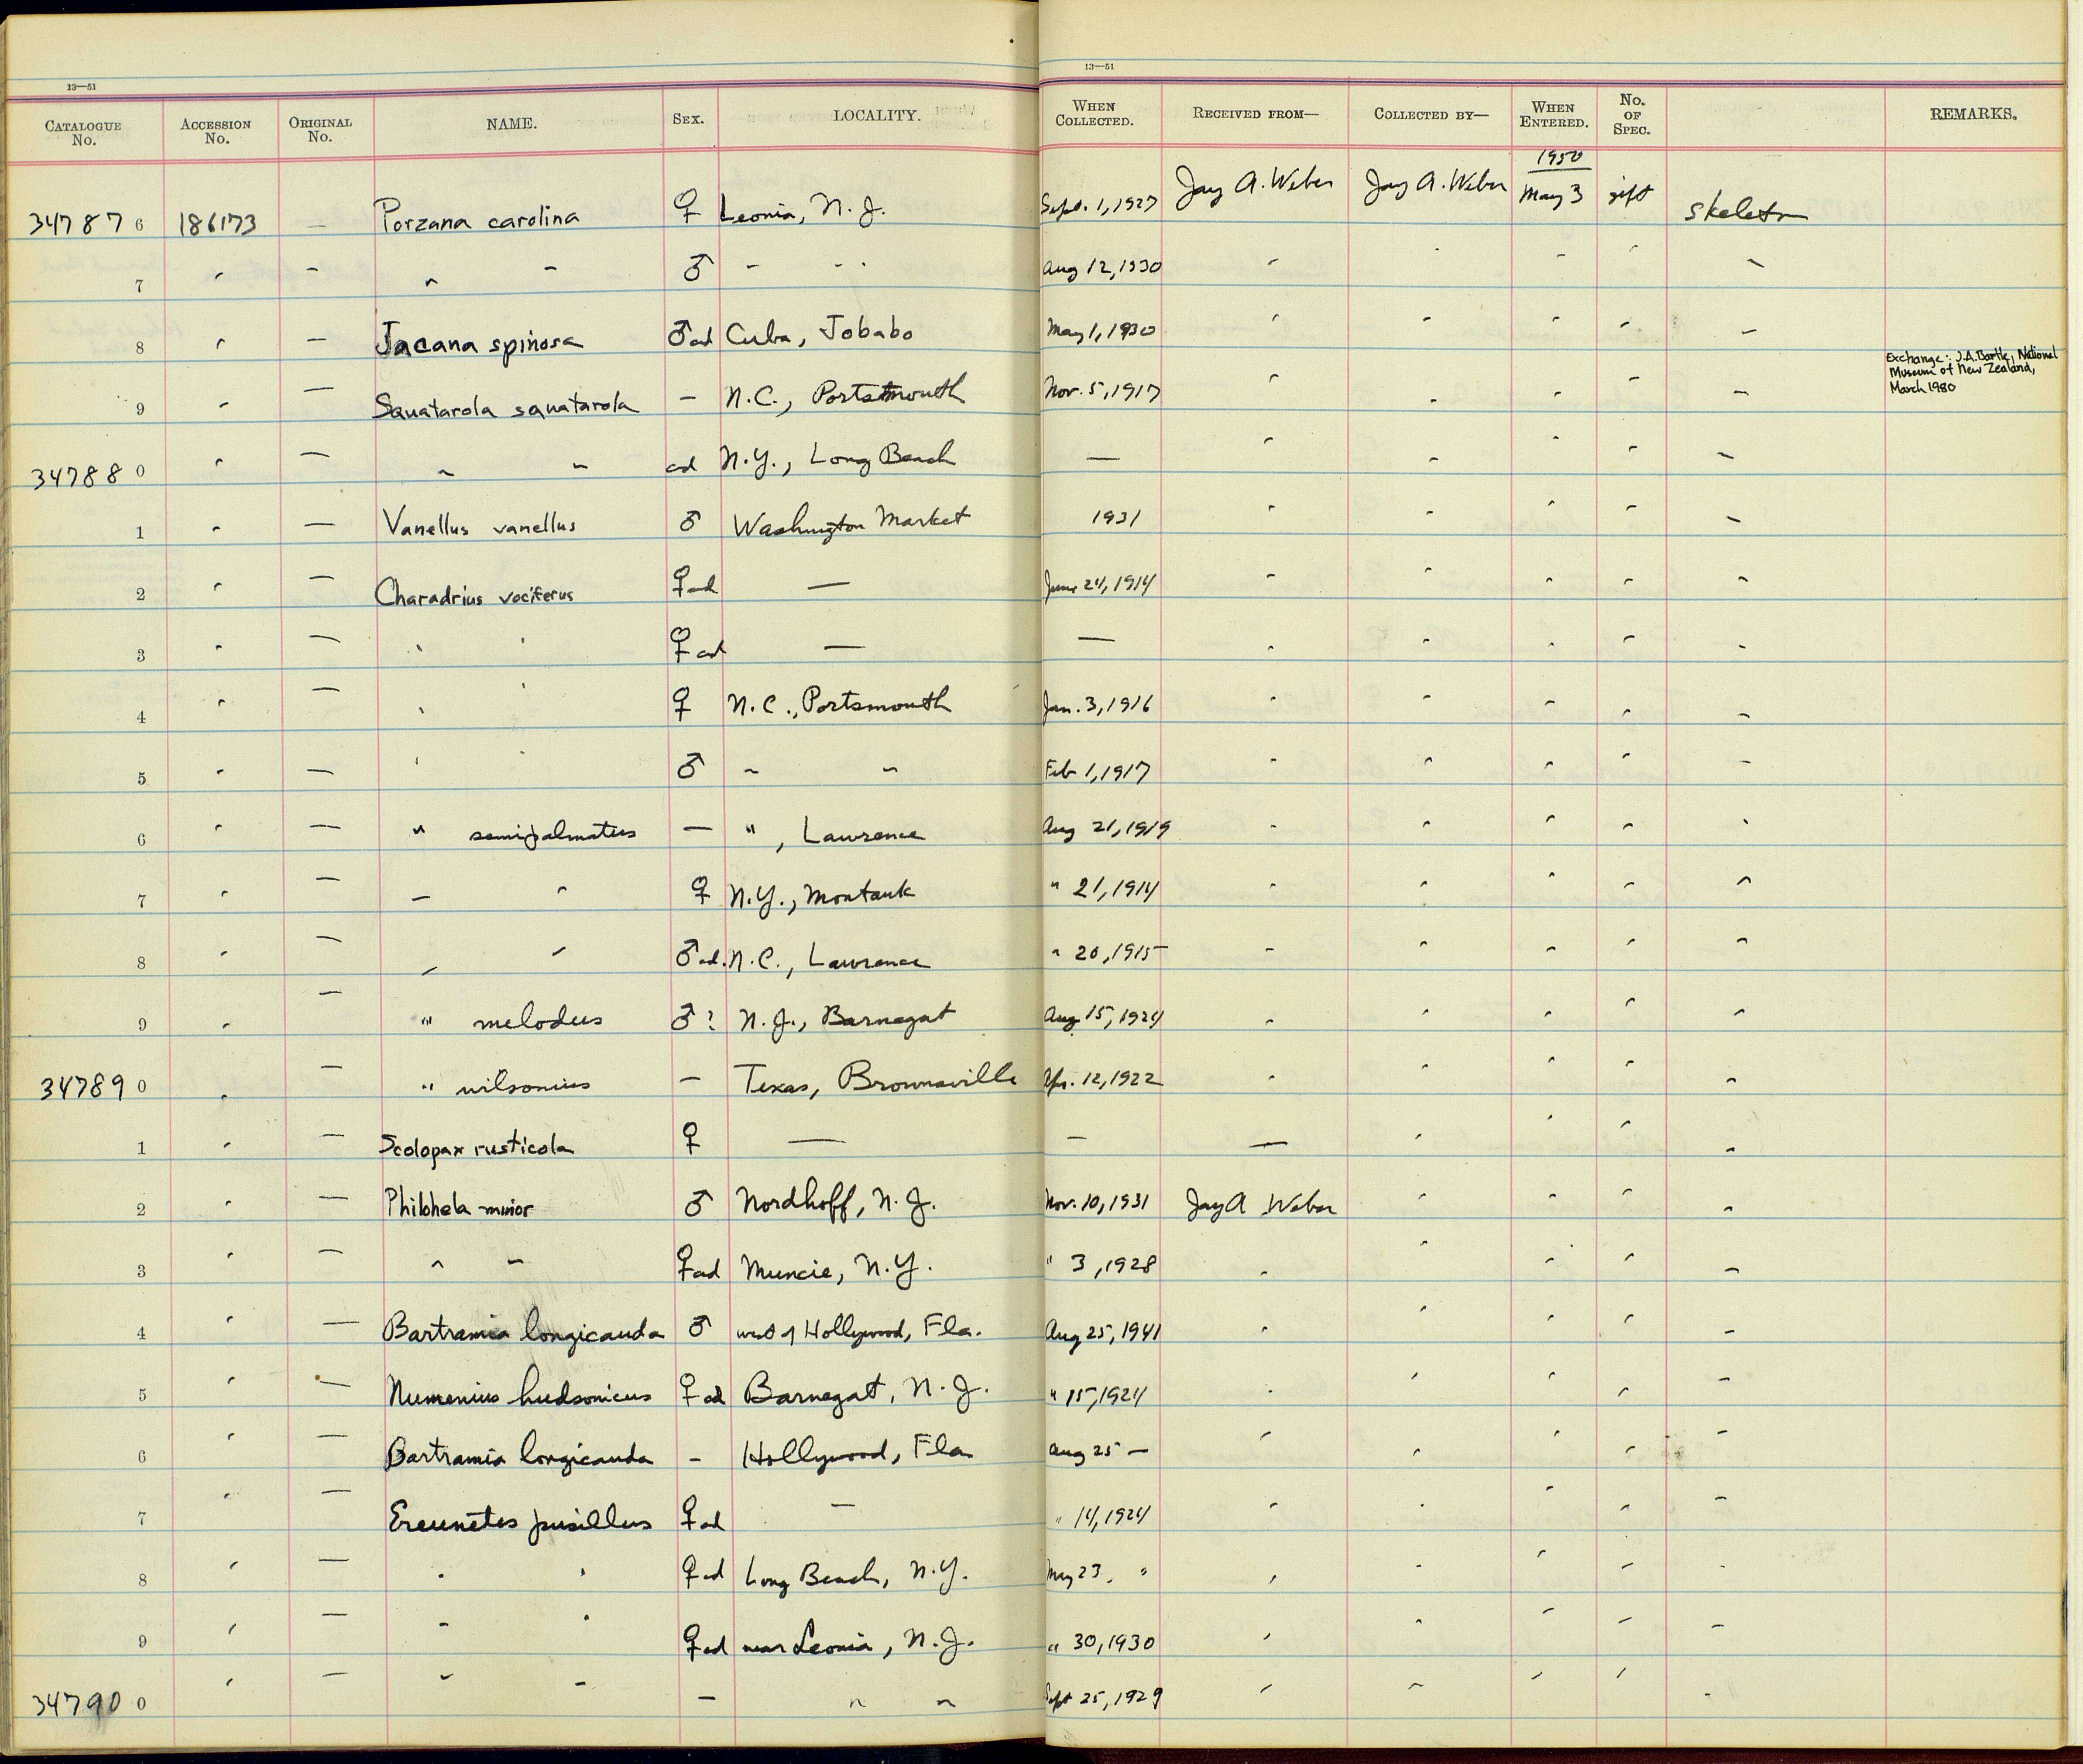 13—51 13—51
CATALOGUE No. ACCESSION No. ORIGINAL No. NAME. SEX. LOCALITY. WHEN COLLECTED. RECEIVED FROM— COLLECTED BY— WHEN ENTERED. No. OF SPEC. REMARKS.
1950
34787 6 186173 — Porzana carolina ♀ Leonia, N. J. Sept. 1, 1927 Jay A. Weber Jay A. Weber May 3 gift skeleton
7 " — " " ♂ " " " Aug 12, 1930 " " " " "
8 " — Jacana spinosa ♂ad Cuba, Jobabo May 1, 1930 " " " " "
Exchange: J.A. Bartle, National
Museum of New Zealand,
March 1980
9 " — Squatarola squatarola — N.C., Portsmouth Nov. 5, 1917 " " " " "
34788 0 " — " " ad N.Y., Long Beach — " " " " "
1 " — Vanellus vanellus ♂ Washington Market 1931 " " " " "
2 " — Charadrius vociferus ♀ad — June 24, 1914 " " " " "
3 " — " " ♀ad — — " " " " "
4 " — " " ♀ N.C., Portsmouth Jan. 3, 1916 " " " " "
5 " — " " ♂ " " Feb 1, 1917 " " " " "
6 " — " semipalmatus — " , Lawrence Aug 21, 1919 " " " " "
7 " — " " ♀ N.Y., Montauk " 21, 1914 " " " " "
8 " — " " ♂ad. N.C., Lawrence " 20, 1915 " " " " "
9 " — " melodus ♂? N.J., Barnegat Aug 15, 1924 " " " " "
34789 0 " — " wilsonius — Texas, Brownsville Apr. 12, 1922 " " " " "
1 " — Scolopax rusticola ♀ — — — " " " "
2 " — Philohela minor ♂ Nordhoff, N. J. Nov. 10, 1931 Jay A Weber " " " "
3 " — " " ♀ad Muncie, N.Y. " 3, 1928 " " " " "
4 " — Bartramia longicauda ♂ west of Hollywood, Fla. Aug 25, 1941 " " " " "
5 " — Numenius hudsonicus ♀ad Barnegat, N. J. " 15, 1924 " " " " "
6 " — Bartramia longicauda — Hollywood, Fla Aug 25 — " " " " "
7 " — Ereunetes pusillus ♀ad — " 14, 1924 " " " " "
8 " — " " ♀ad Long Beach, N.Y. May 23, " " " " " "
9 " — " " ♀ad near Leonia, N.J. " 30, 1930 " " " " "
34790 0 " — " " — " " Sept 25, 1929 " " " " "